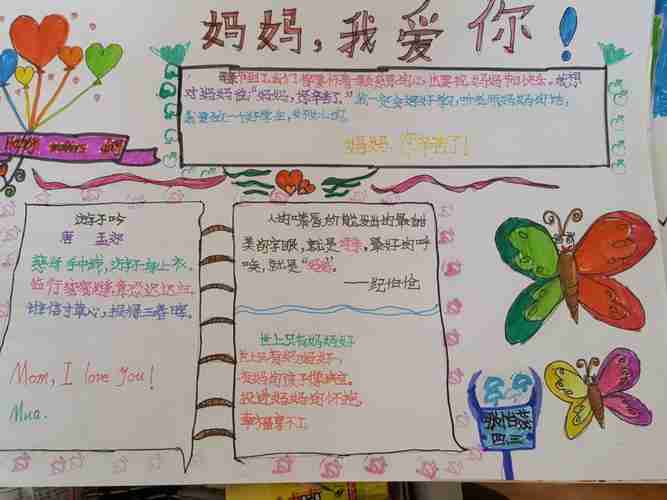 妈妈,我爱你!
Happy mothers day
对妈妈说:“妈妈,您辛苦了。”我一定会好好学习,听爸爸妈妈的话,
妈妈,您辛苦了!
游子吟
唐 孟郊
慈母手中线,游子身上衣。
临行密密缝,意恐迟迟归。
谁信寸草心,报得三春晖。
Mom, I love you!
Mua.
人的嘴唇所能发出的最甜
美的字眼,就是母亲,最好的呼
唤,就是“妈妈”。
——纪伯伦
世上只有妈妈好
世上只有妈妈好,
有妈的孩子像块宝。
投进妈妈的怀抱,
幸福享不了。